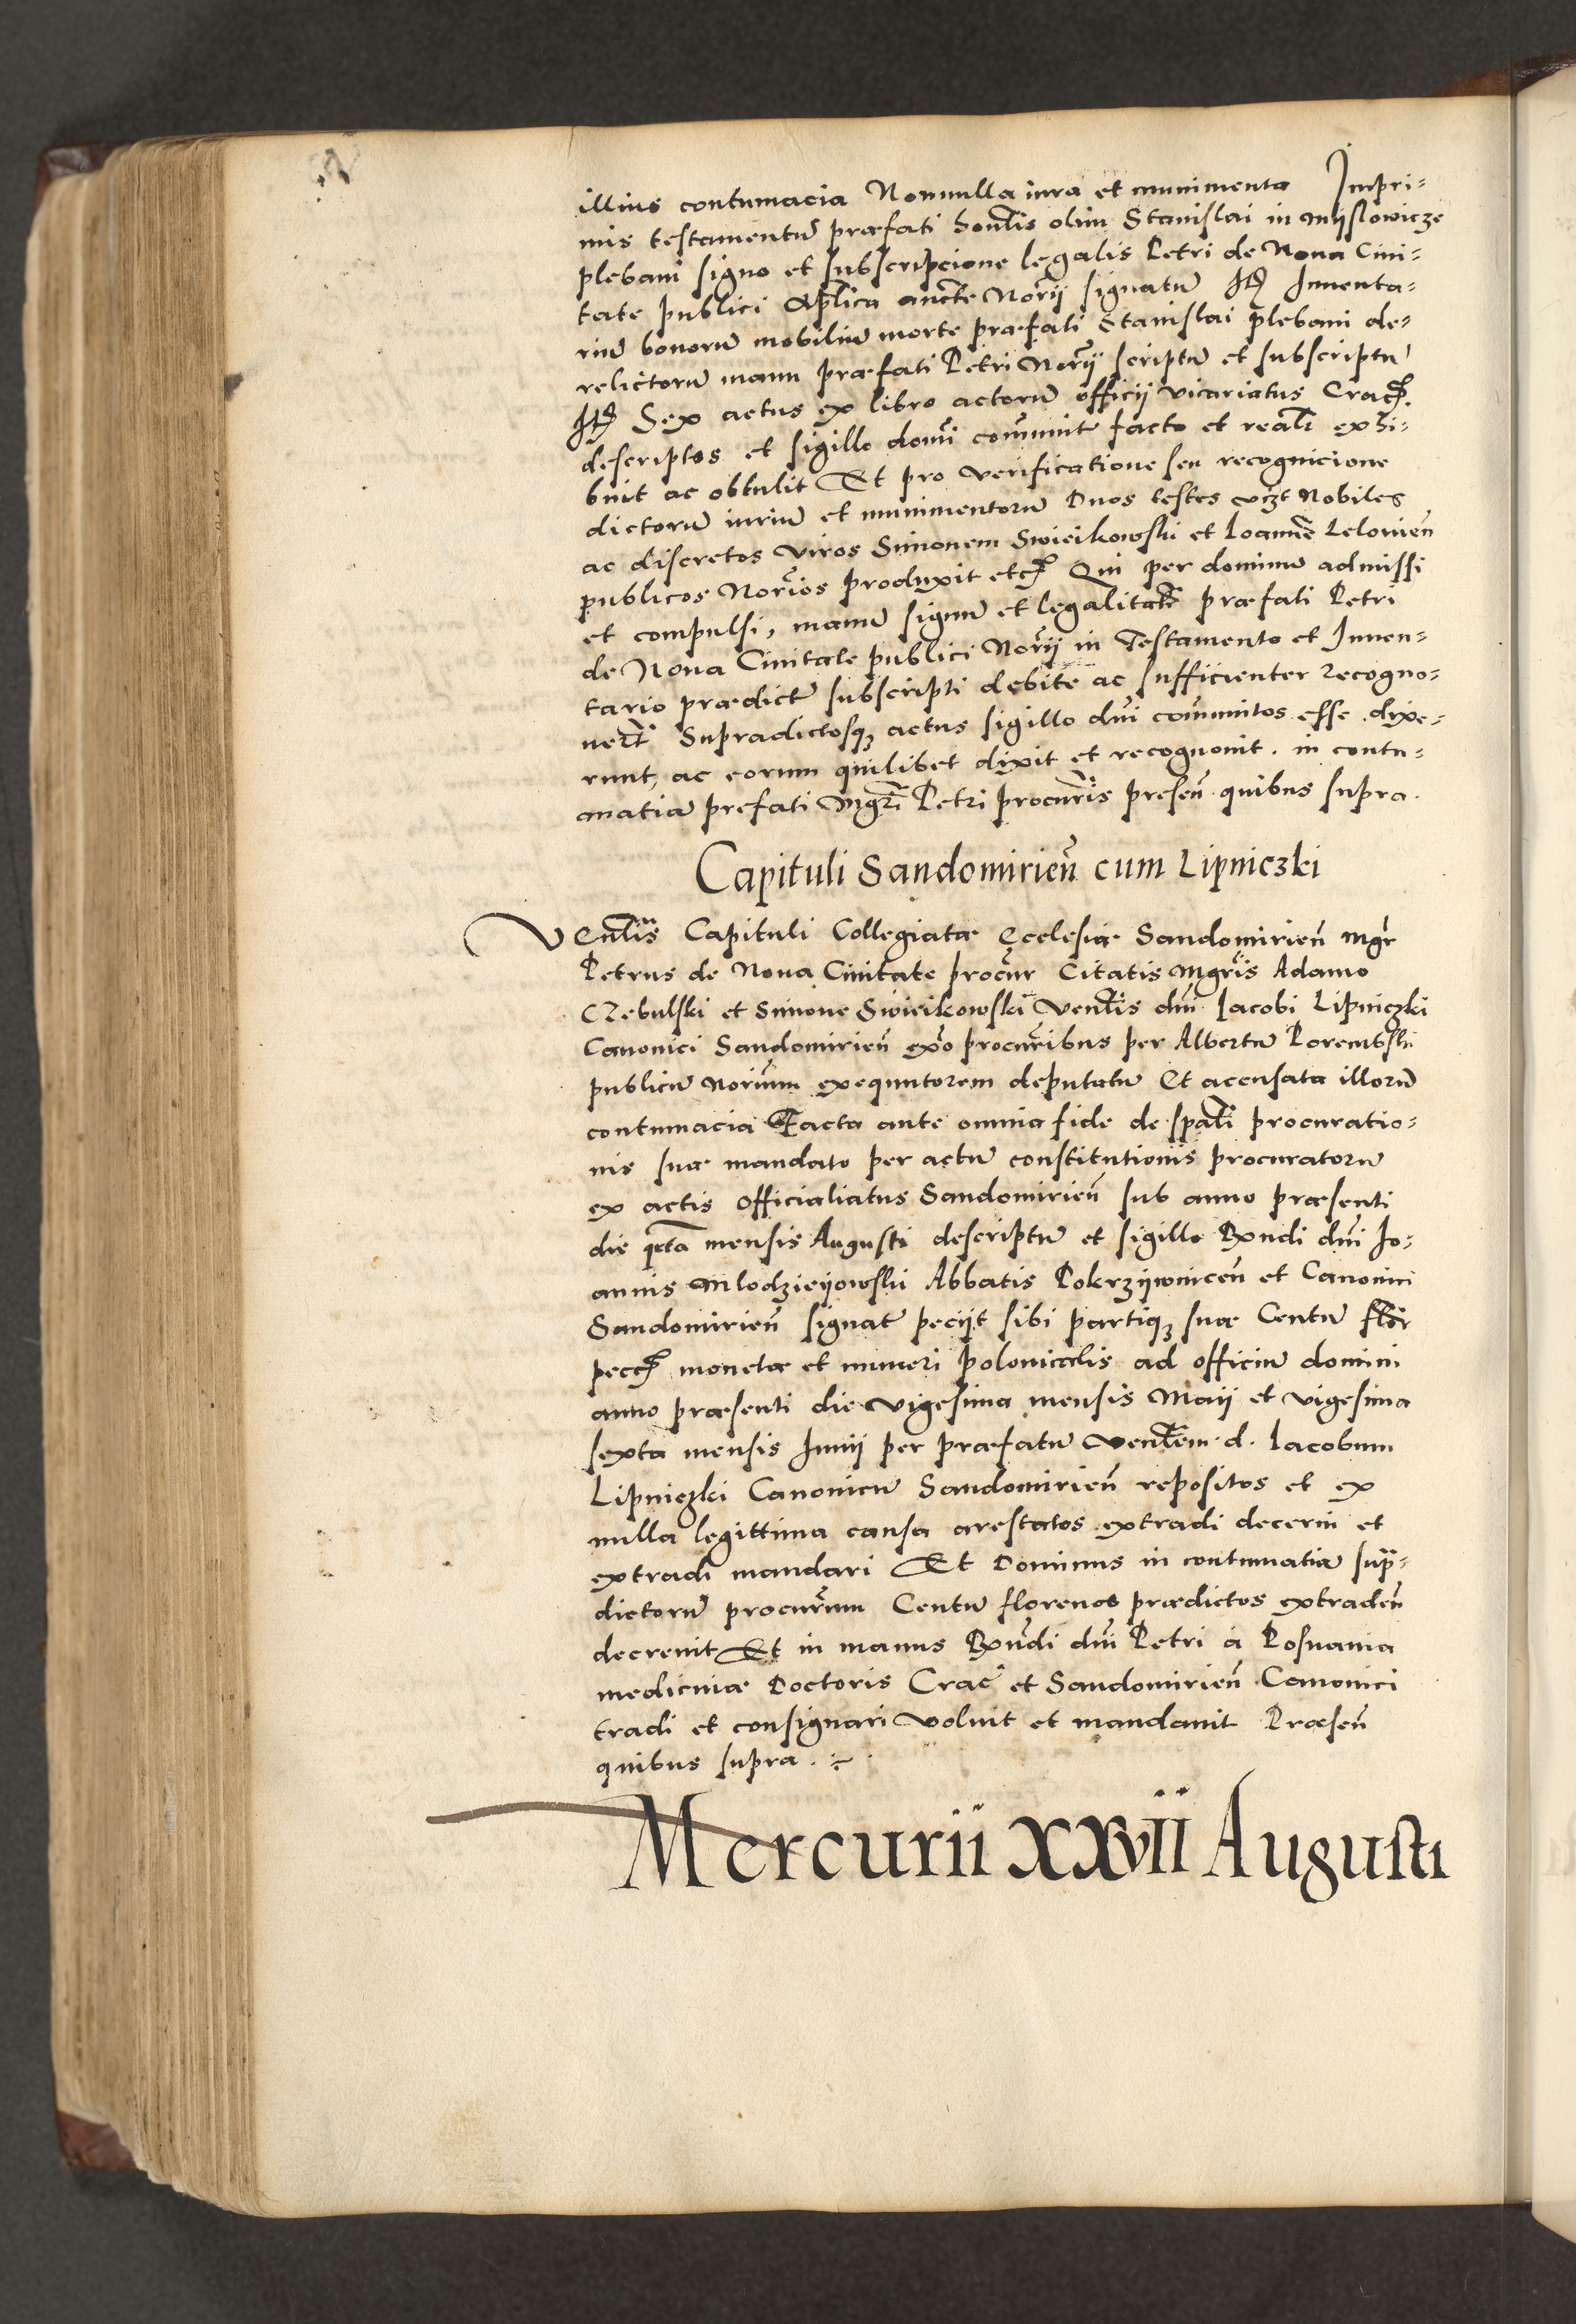 illius contumacia Nonnulla iura et munimenta Impri-
mis testamentũ præfati honlis olim Stanislai in Mijslowicze
plebani signo et subscripcione legalis Petri de Noua Ciui-
tate publici Aplica aucte Norij signatũ Itẽ Inuenta-
riũ bonorũ mobiliũ morte præfati Stanislai plebani de-
relictorũ manu præfati Petri Norij scriptũ et subscriptũ
Itẽ Sex actus ex libro actorũ officij vicariatus Crac.
descriptos et sigillo domi com̃unit facto et realr exhi-
buit ac obtulit Et pro verificatione seu recognicione
dictorũ iuriũ et munimentorũ Duos testes vizt Nobiles
ac discretos viros Simonem Swieikowski et Ioannẽ Lelowieñ
publicos Norios produxit etc̃ Qui per dominũ admissi
et compulsi, manũ signũ et legalitatẽ præfati Petri
de Noua Ciuitate publici Norij in Testamento et Inuen-
tario prædictũ subscripti debite ac sufficienter recogno-
uert Supradictosq; actus sigillo dni com̃unitos esse dixe-
runt, ac eorum quilibet dixit et recognouit. in contu-
matia prefati Mgri Petri procuris preseñ quibus supra.
Capituli Sandomirieñ cum Lipniczki
Venlis Capituli Collegiatæ Ecclesiæ Sandomirieñ Mgr
Petrus de Noua Ciuitate procur Citatis Mgris Adamo
Czebulski et Simone Swieikowski Venlis dni Iacobi Lipniczki
Canonici Sandomirieñ exo procuribus per Albertũ Porembski
publicũ Norium exequutorem deputatũ Et accusata illorũ
contumacia Facta ante omnia fide de spali procuratio-
nis suæ mandato per actũ constitutionis procuratorũ
ex actis officialiatus Sandomirieñ sub anno præsenti
die qrta mensis Augusti descriptũ et sigillo Rxndi dni Io-
annis Mlodzieijowski Abbatis Pokrzijwniceñ et Canonici
Sandomirieñ signatũ pecijt sibi partiq; suæ Centũ flor
pecc̃ monetæ et numeri polonicalis ad officiũ domini
anno præsenti die vigesima mensis Maij et vigesima
sexta mensis Iunij per præfatũ Venlem d. Iacobum
Lipniczki Canonicũ Sandomirieñ repositos et ex
nulla legittima causa arestatos extradi decerni et
extradi mandari Et Dominus in contumatia supr-
dictorũ procurum Centũ florenos prædictos extradeñ
decreuit Et in manus Rxndi dni Petri à Posnania
medicinæ Doctoris Crac̃ et Sandomirieñ Canonici
tradi et consignari voluit et mandauit Præseñ
quibus supra.
Mercurii XXVII Augusti